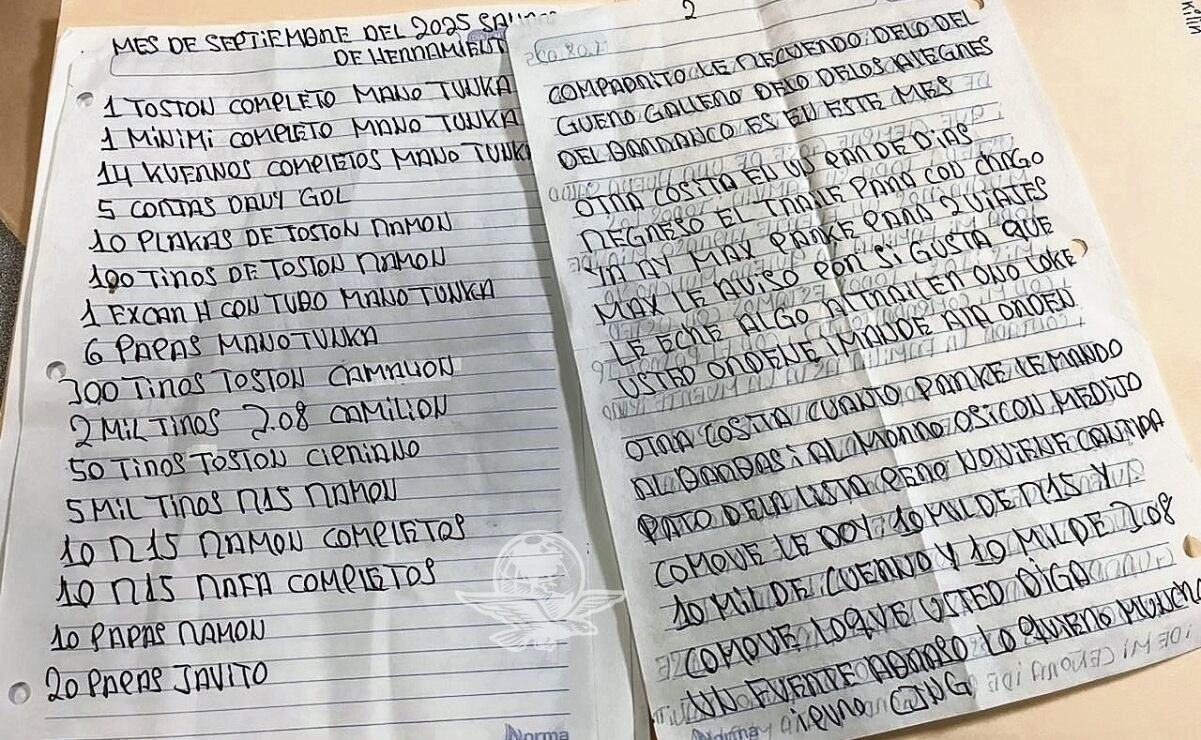 MES DE SEPTIEMBRE DEL 2025
DE HERRAMIENT
1 TOSTON COMPLETO MANO TUNKA
1 MINIMI COMPLETO MANO TUNKA
14 KUERNOS COMPLETOS MANO TUNKA
5 CONTAS DAVY GOL
10 PLAKAS DE TOSTON RAMON
100 TIROS DE TOSTON RAMON
1 EXCAR H CON TUBO MANO TUNKA
6 PAPAS MANO TUNKA
300 TIROS TOSTON CAMALION
2 MIL TIROS 7.08 CAMILION
50 TIROS TOSTON CIPRIANO
5 MIL TIROS R15 RAMON
10 R15 RAMON COMPLETOS
10 R15 RAFA COMPLETOS
10 PAPAS RAMON
20 PAPAS JAVITO
Norma
2
COMPADRITO LE RECUERDO DELO DEL
GUERO GALLERO DELO DELOS ALEGRES
DEL BARRANCO ES EN ESTE MES
OTRA COSITA EN UN PAR DE DIAS
REGRESO EL TRAILE PARA CON CHAGO
YA AY MAX PARKE PARA 2 VIAJES
MAX LE AVISO POR SI GUSTA QUE
LE ECHE ALGO AL TRAILER ONO LOKE
USTED ORDENE I MANDE A LA ORDEN
OTRA COSITA CUANTO PARKE LE MANDO
AL BARBAS I AL MORRO OSICON MEDITO
PATO DELA LISTA PERO NO VIENE CANTIDA
COMOVE LE DOY 10 MIL DE R15 Y
10 MIL DE CUERNO Y 10 MIL DE 7.08
COMOVE LOQUE USTED DIGA
UN FUERTE ABRASO LO QUIERO MUNCHO
CJNG
Norma